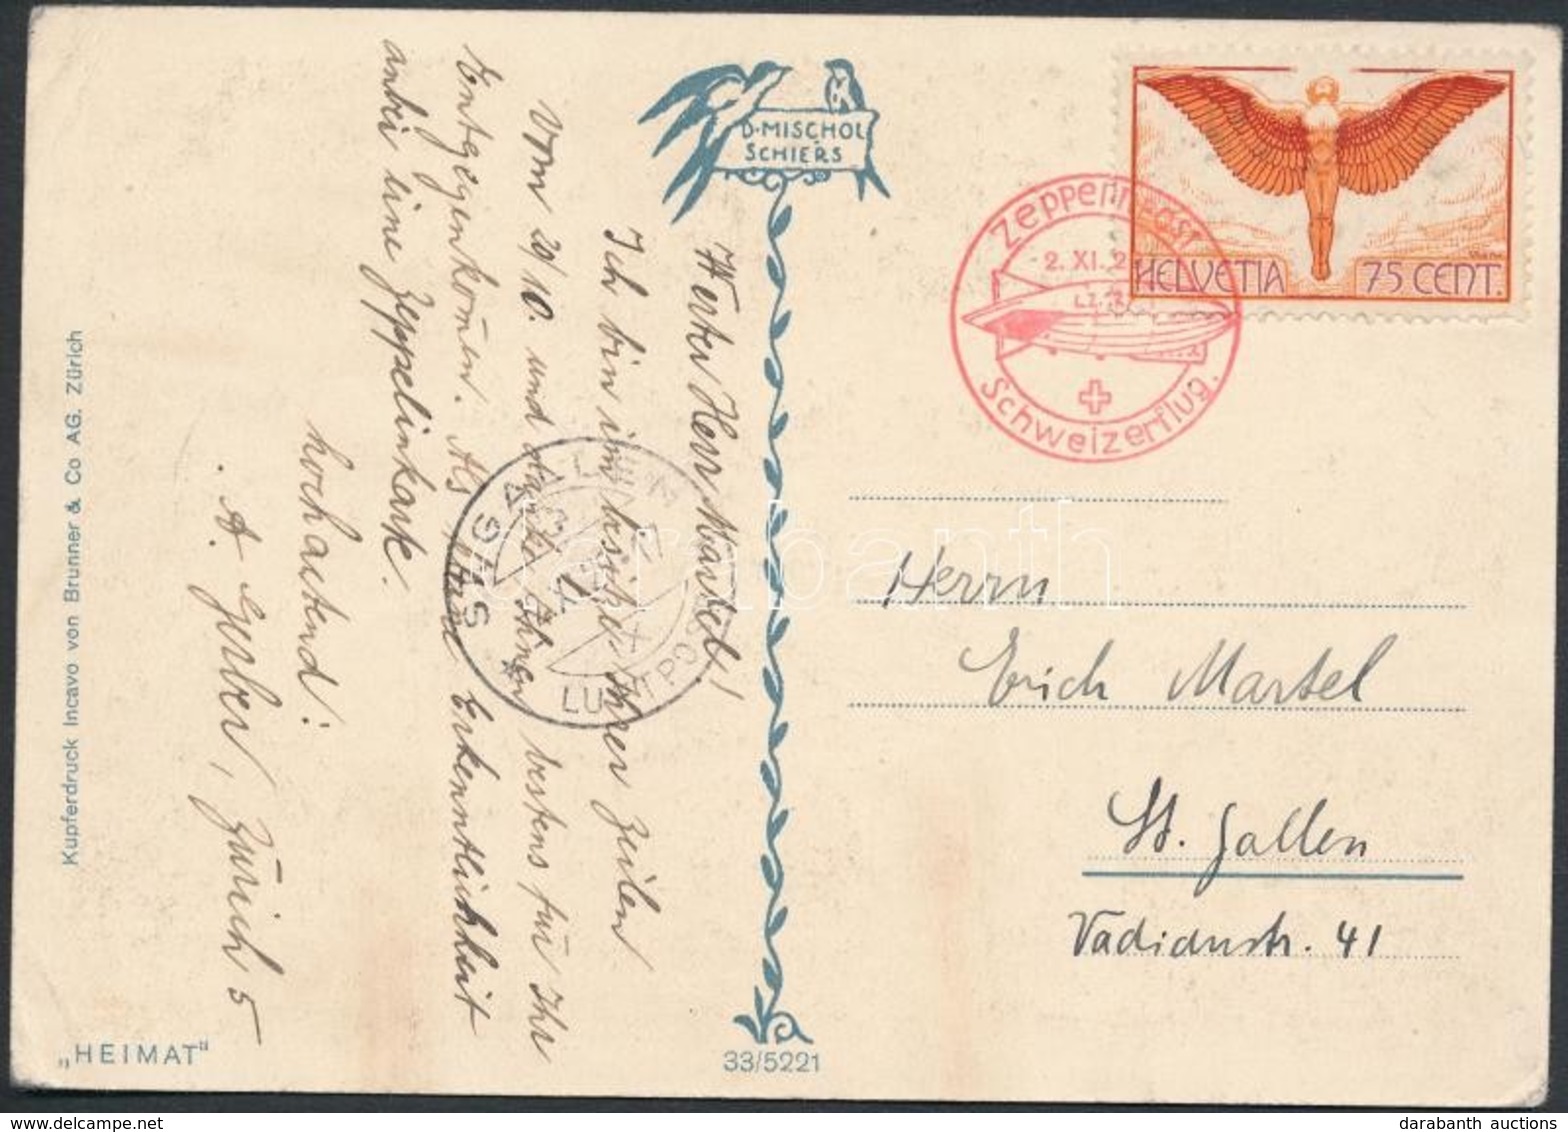 D·MISCHOL
SCHIERS
HELVETIA 75 CENT.
2. XI. 2
Schweizerflug.
Werter Herr Martel!
Ich bin im Besitze Ihrer Zeilen
vom 29/10. und danke Ihnen bestens für Ihr
Entgegenkom̄en. Als Erkenntlichkeit
anbei eine Zeppelinkarte.
hochachtend!
A. Gerber, Zürich 5
Herrn
Erich Martel
St. Gallen
Vadianstr. 41
Kupferdruck Incavo von Brunner & Co AG. Zürich
„HEIMAT"
33/5221
darabanth
www.darabanth.com darabanth auctions